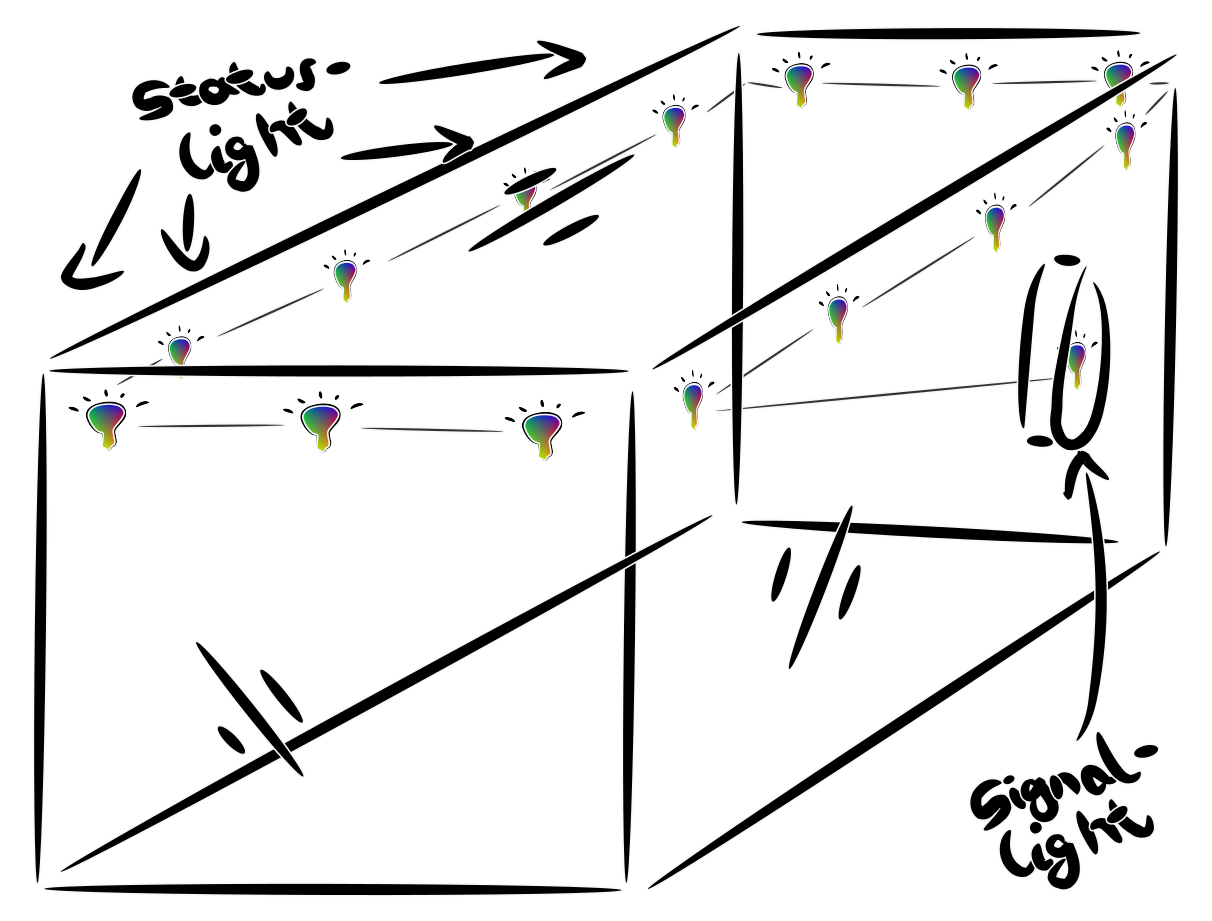 Status-
light
Signal-
light